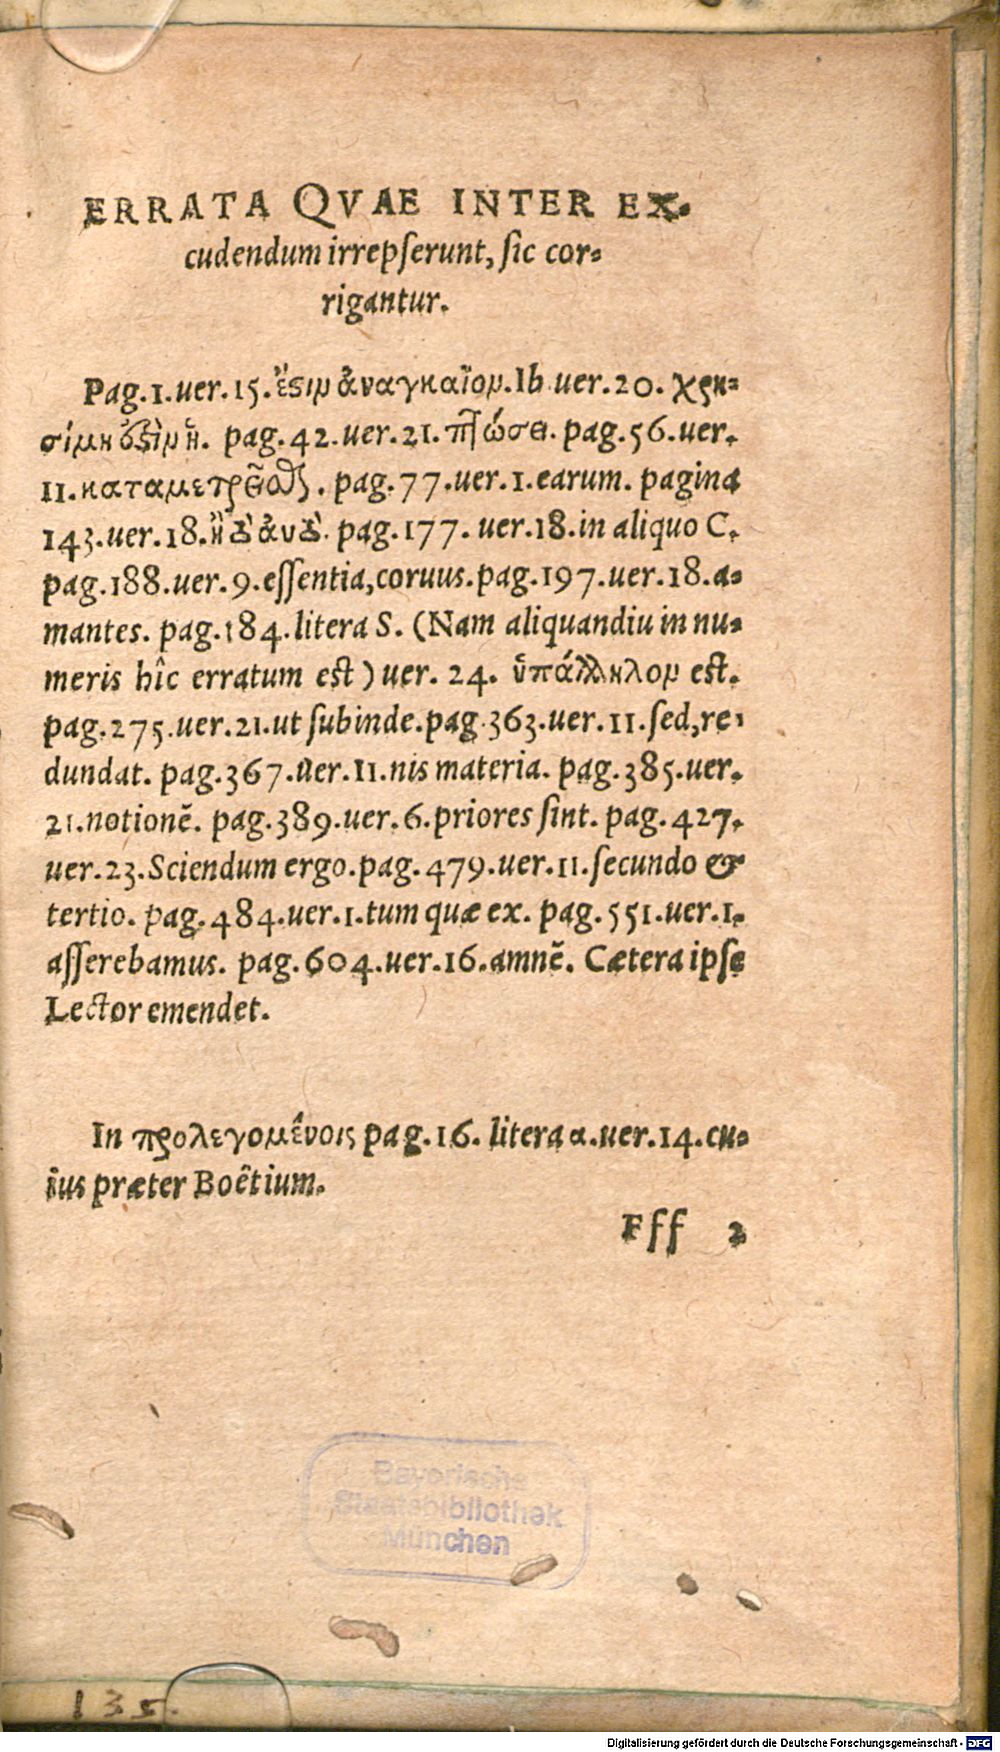 ERRATA QVAE INTER EX-
cudendum irrepserunt, sic cor-
rigantur.
Pag.1.ver.15.ἔστιν ἀναγκαῖον.Ib.ver.20. χρη-
σίμη ὅτι ἦν. pag.42.ver.21.πτώσει.pag.56.ver.
11.καταμετρεῖσθαι. pag.77.ver.1.earum. pagina
143.ver.18. pag.177. ver.18.in aliquo C.
pag.188.ver.9.essentia,coruus.pag.197.ver.18.a-
mantes. pag.184.litera S. (Nam aliquandiu in nu-
meris hîc erratum est) ver. 24. ὑπάλληλον est.
pag.275.ver.21.ut subinde.pag.363.ver.11.sed,re-
dundat. pag.367.ver.11.nis materia. pag.385.ver.
21.notionē. pag.389.ver.6.priores sint. pag.427.
ver.23.Sciendum ergo.pag.479.ver.11.secundo &
tertio. pag.484.ver.1.tum quæ ex. pag.551.ver.1.
asserebamus. pag.604.ver.16.amnē. Cætera ipse
Lector emendet.
In προλεγομένοις pag.16. litera α.ver.14.cu-
ius præter Boëtium.
Fff 2
Bayerische
Staatsbibliothek
München
135.
Digitalisierung gefördert durch die Deutsche Forschungsgemeinschaft - DFG